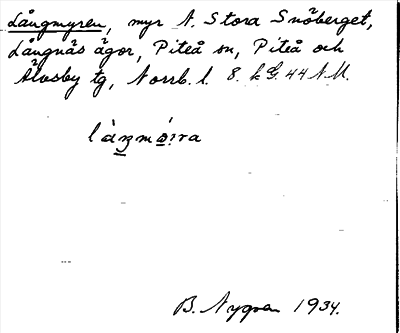 Långmyren, myr N. Stora Snöberget,
Långnäs ägor, Piteå sn, Piteå och
Älvsby tg, Norrb. l. 8.
B. Nygren 1934.